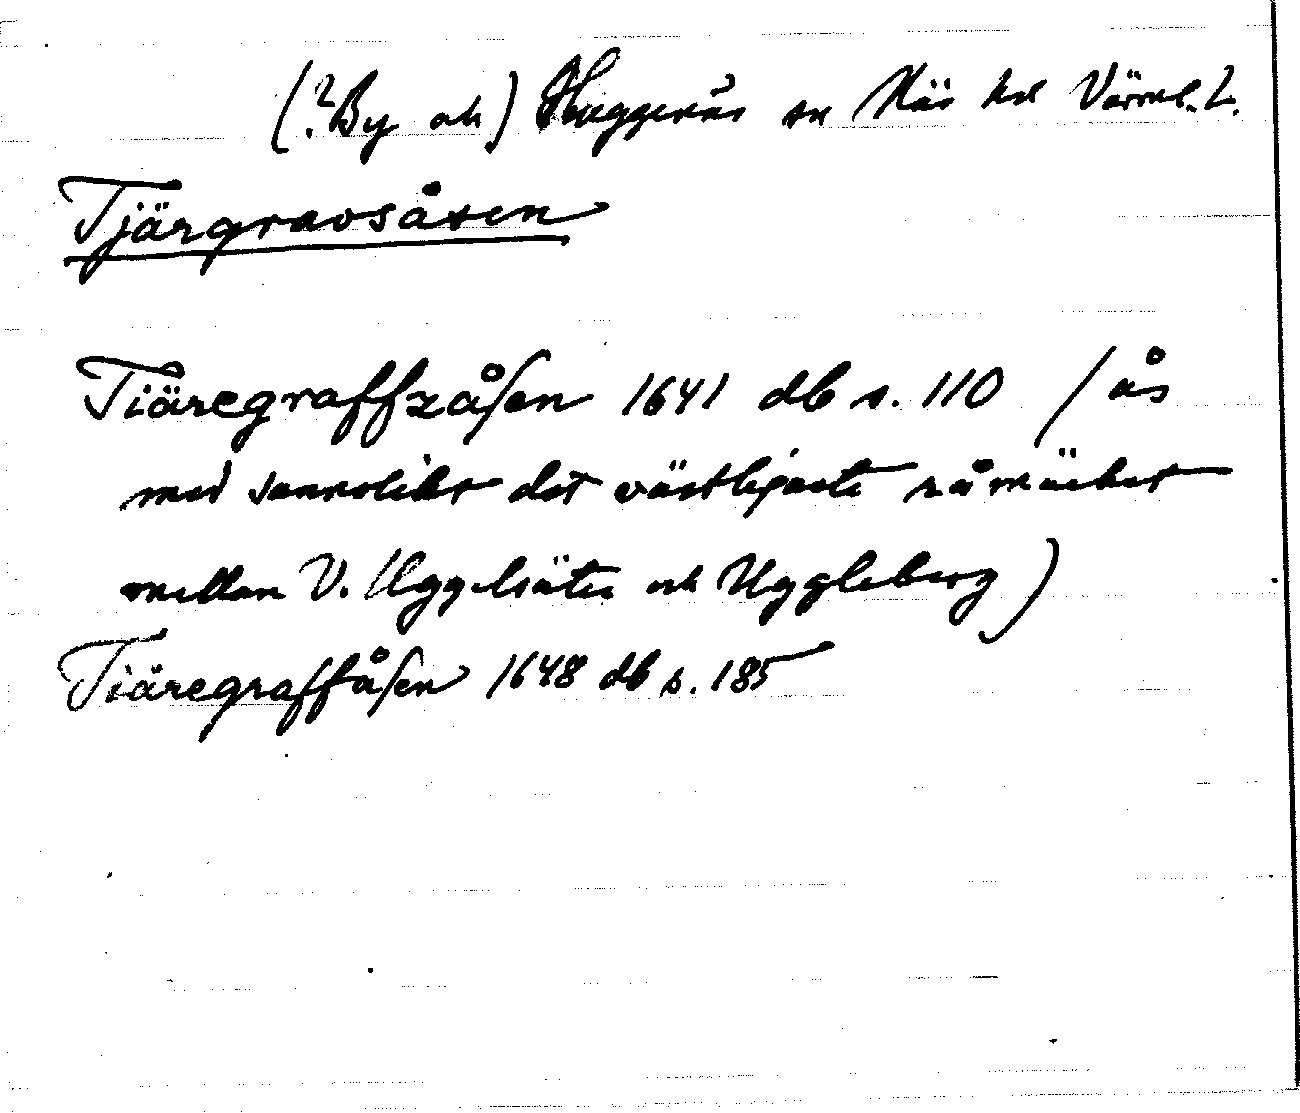 (?By och) Huggenäs sn Näs hd Värml. L.
Tjärgravsåsen
Tiäregraffzåsen 1641 db s. 110 / ås
med sannolikt det västligaste råmärket
mellan V. Uggelsäter och Uggleberg)
Tiäregraffåsen 1648 db s. 185